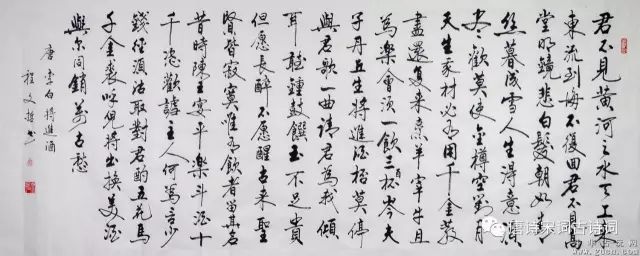 君不见黄河之水天上来
东流到海不復回君不見高
堂明鏡悲白髮朝如青
丝暮成雪人生得意須
尽歡莫使金樽空對月
天生我材必有用千金散
盡還复来烹羊宰牛且
為樂會須一飲三百杯岑夫
子丹丘生將進酒杯莫停
與君歌一曲請君為我傾
耳聽鐘鼓饌玉不足貴
但愿長醉不愿醒古来聖
賢皆寂寞惟有飲者留其名
昔時陳王宴平樂斗酒十
千恣歡謔主人何為言少
錢徑須沽取對君酌五花馬
千金裘呼兒將出換美酒
與尔同銷萬古愁
唐李白將進酒
程文
唐诗宋词古诗词